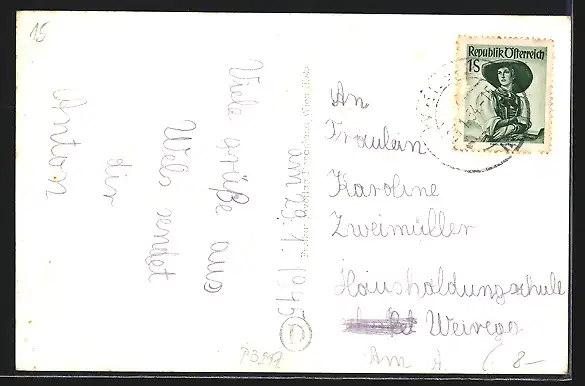 15
Viele grüße aus
Wels sendet
dir
Anton
am 29. 1. 1945
C
Republik Österreich
1 S
WELS
An
Fräulein
Karoline
Zweimüller
Haushaldungsschule
Weiregg
Am A.
8-